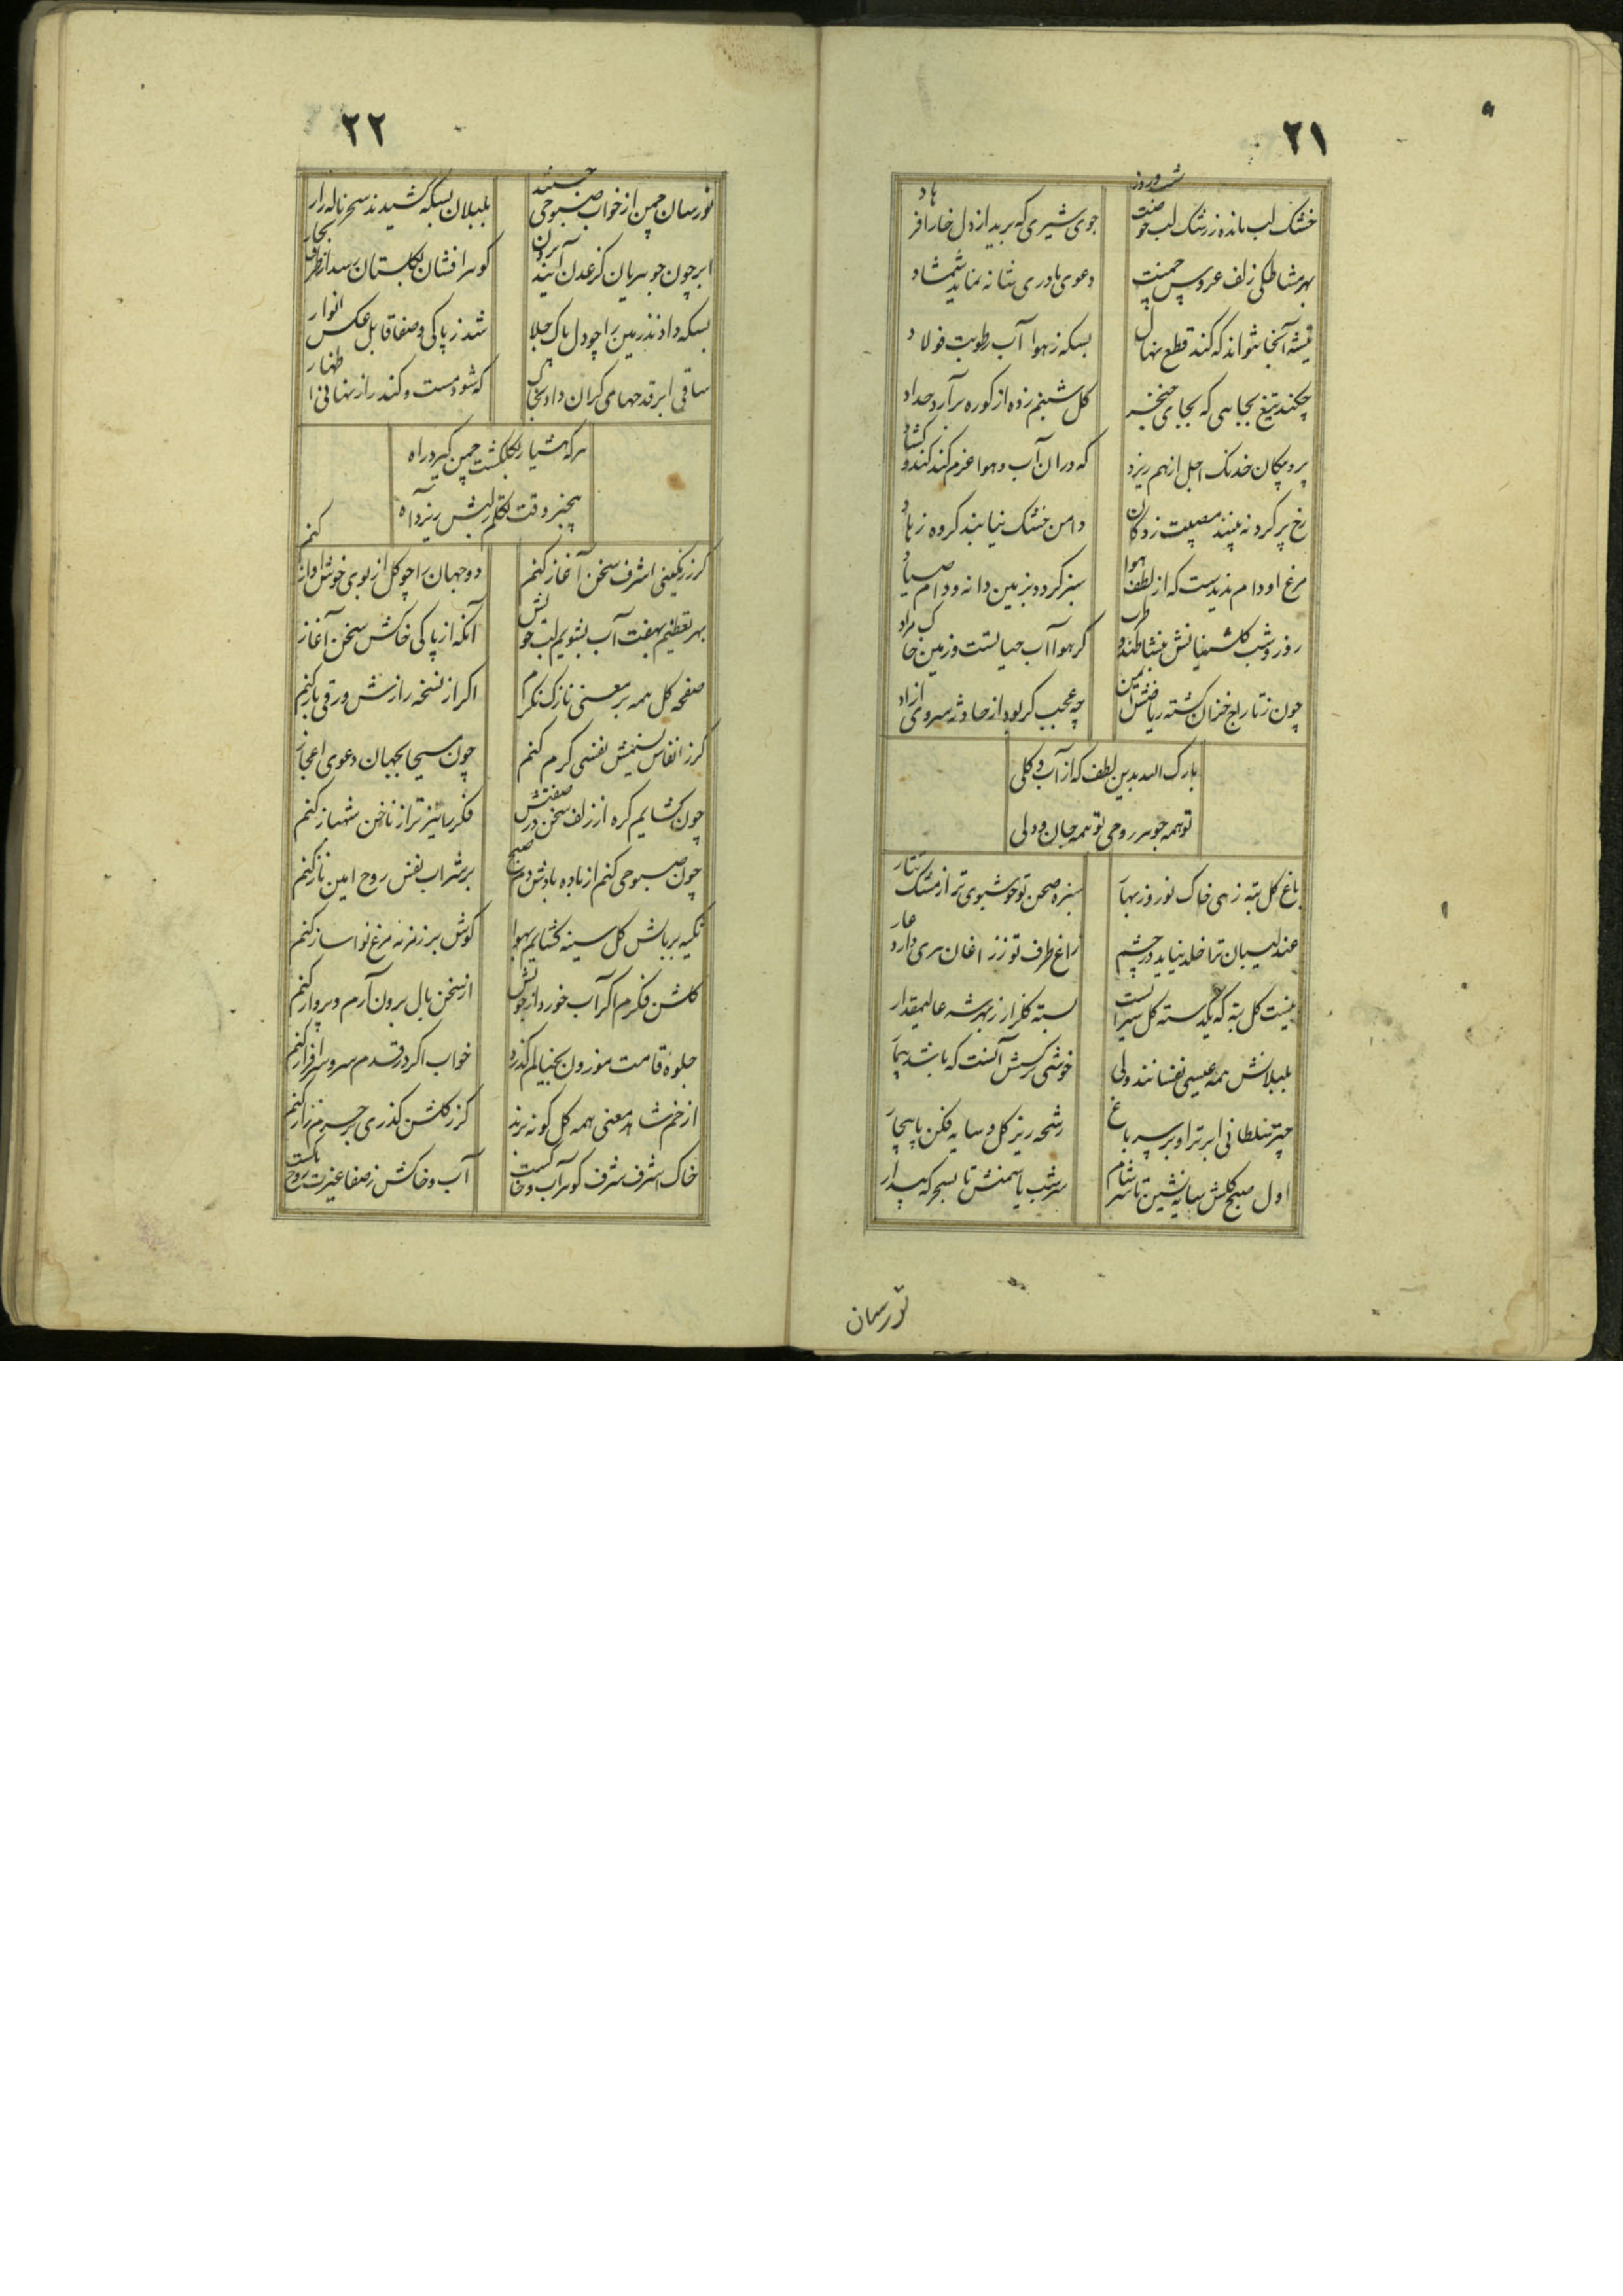 ۲۱
خشک لب مانده ز رشک لب جو شب و روز
جوی شیری که برید از دل خارا فرهاد
بهر مشاطکی زلف عروس چمنت
دعوی مادری شانه نماید شمشاد
تیشه آنجا نتواند که کند قطع نهال
بسکه ز هوا آب رطوبت فولاد
چکند تیغ بجاهی که بجای خنجر
کل شبنم زده از کوره برآرد حداد
پر و پیکان خدنک اجل از هم ریزد
که دران آب و هوا عزم کند کند و کشاد
رخ پر کرد نه بینند مصیبت زدکان
دامن خشک نیابند کروه زهاد
مرغ او دام ندیدست که از لطف هوا
سبز کرده بزمین دانه و دام صیاد
روز و شب کلشنیانش بنشاط و طرب
کر هوا آب حیاتست و زمین خاک مراد
چون ز تاراج خزان کشته ریاضش ایمن
چه عجب کر بود از حادثه سروش ازاد
بارک الله بدین لطف که از آب و کلی
تو همه جوهر روحی تو همه جان و دلی
باغ کل تپه زهی خاک نوروز بهار
سبزه صحن تو خوشبوی تر از مشک تتار
عندلیبان ترا خلد نیاید در چشم
زاغ طرف تو ز زاغان سری دارد عار
نیست کل تپه که یکدسته کل سیرابست
بسته کلزار ز بهر شه عالیمقدار
بلبلانش همه عیسی نفسانند ولی
خوشی نرکسش آنست که باشد بیمار
چتر سلطانی ابر تراو بر سر باغ
رشحه ریز کل و سایه فکن پا بچنار
اول صبح کلش سایه نشین تا سر شام
سر شب یاسمنش تا بسحرکه بیدار
نورسان
۲۲
نورسان چمن از خواب صبوحی جستند
بلبلان بسکه کشیدند سحر ناله زار
ابر چون جوهریان کز عدن آیند برون
کوهر افشان بکلستان رسد از طرف بحار
بسکه دادند زمین را چو دل پاک جلا
شد ز پاکی و صفا قابل عکس انوار
ساقی ابر قدحهای کران داد بخاک
که شود مست و کند راز نهانی اظهار
هرکه هشیار بکلکشت چمن کیرد راه
بیخبر وقت تکلم ز لبش ریزد آه
کر ز رنکینی اشرف سخن آغاز کنم
دو جهان را چو کل از بوی خوش آواز کنم
بهر تعظیم بهفت آب بشویم لب خویش
آنکه از پاکی خاکش سخن آغاز کنم
صفحه کل همه پر معنی نازک نکرم
اکر از نسخه رازش ورقی باز کنم
کر ز انفاس نسیمش نفسی کرم کنم
چون مسیحا بجهان دعوی اعجاز کنم
چون کشایم کره از زلف سخن در صفتش
فکر را تیز تر از ناخن شهباز کنم
چون صبوحی کنم از باده بادش دم صبح
بر شراب نفس روح امین ناز کنم
تکیه بر بالش کل سینه کشایم بهوا
کوش بر زمزمه مرغ نوا ساز کنم
کلشن فکرم اکر آب خورد از جویش
از سخن بال برون آرم و پرواز کنم
جلوه قامت موزون بخیالم کذرد
خواب اکر در قدم سرو سرافراز کنم
از خم شاهد معنی همه کل کونه برند
کز کلشن کذری بر سرم راز کنم
خاک اشرف شرف کوهر آب و خاکست
آب و خاکش ز صفا غیرت روح پاکست